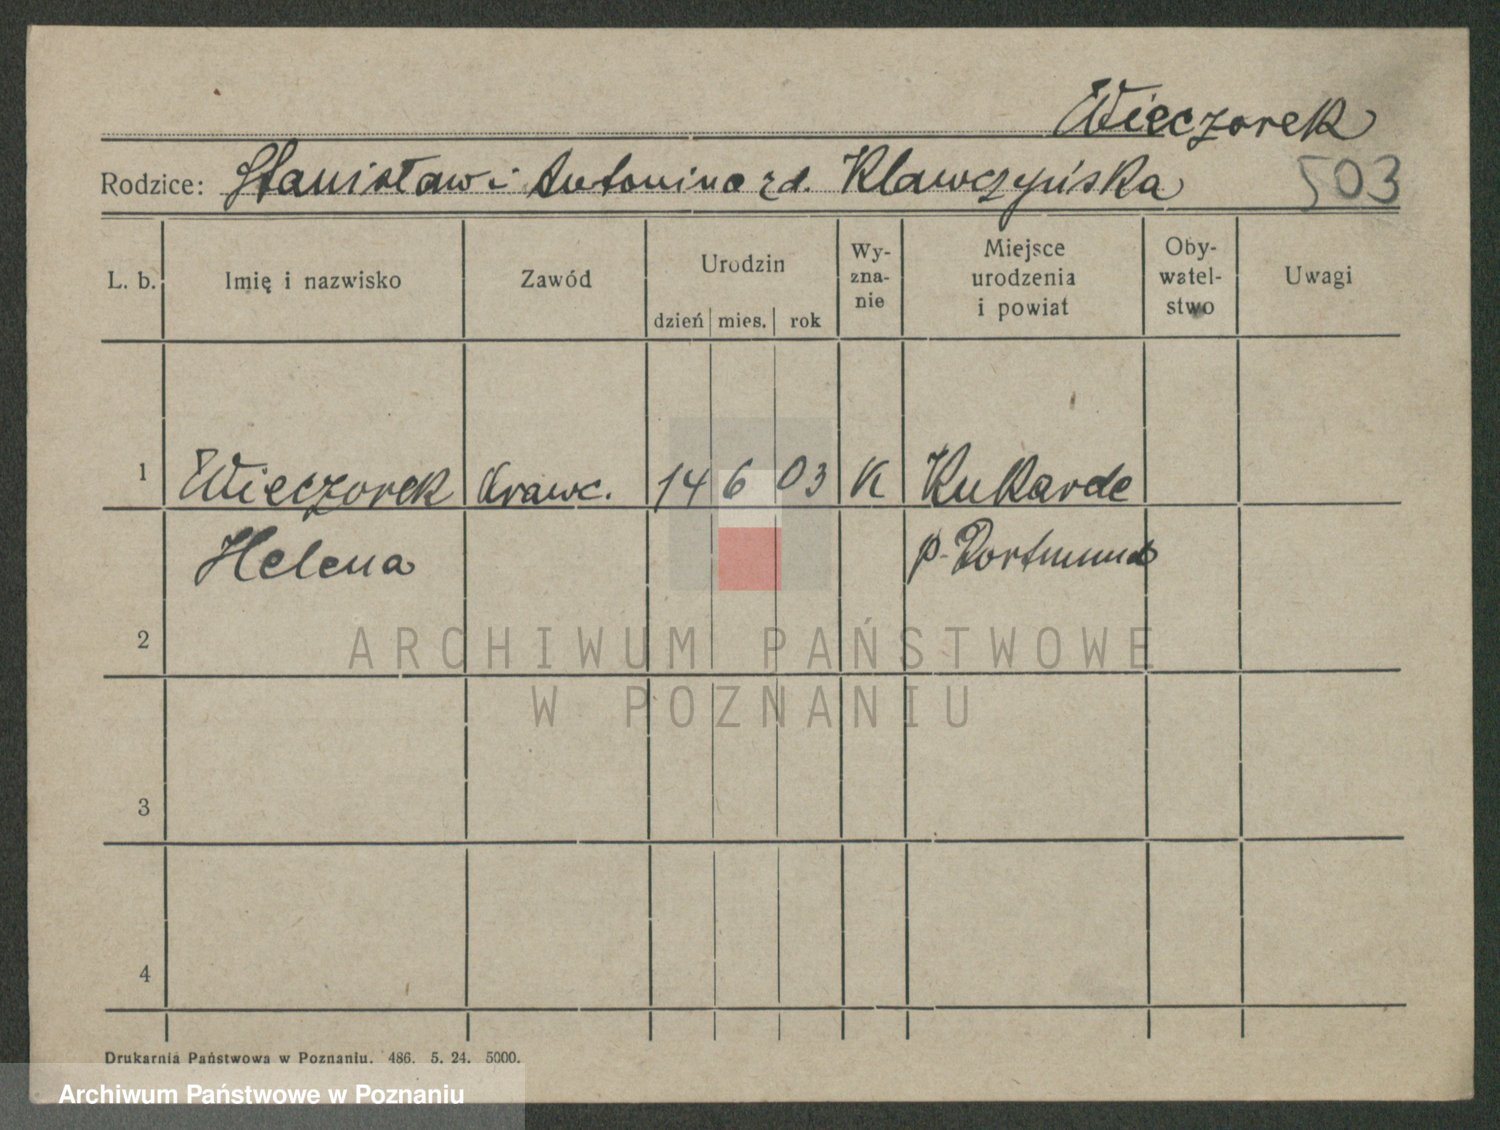 Wieczorek
Rodzice: Stanisław i Antonina zd. Klawczyńska 503
L. b. Imię i nazwisko Zawód Urodzin Wy-zna-nie Miejsce urodzenia i powiat Oby-watel-stwo Uwagi
dzień mies. rok
1 Wieczorek krawc. 14 6 03 K Kukarde
Helena p. Dortmund
2
3
4
Drukarnia Państwowa w Poznaniu. 486. 5. 24. 5000.
ARCHIWUM PAŃSTWOWE
W POZNANIU
Archiwum Państwowe w Poznaniu